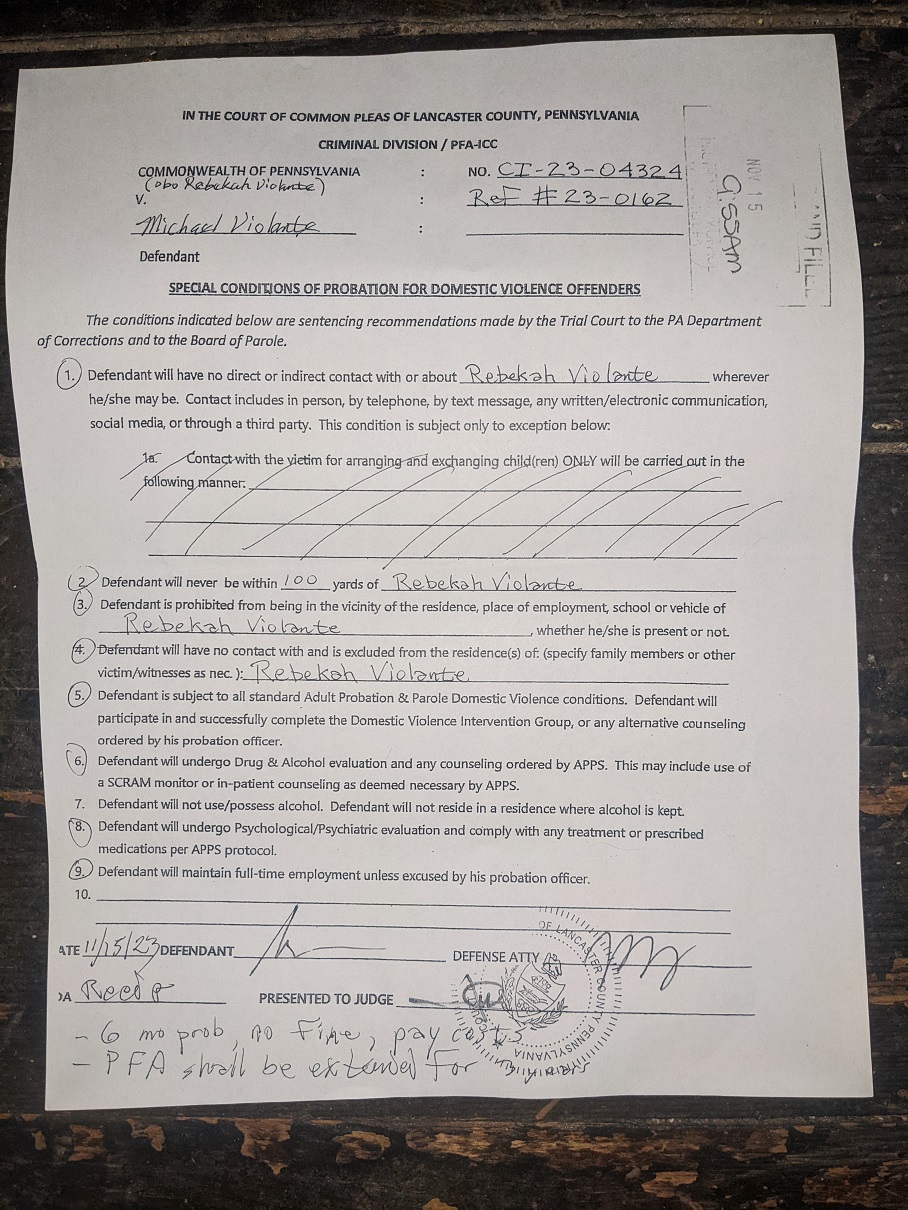 IN THE COURT OF COMMON PLEAS OF LANCASTER COUNTY, PENNSYLVANIA
CRIMINAL DIVISION / PFA-ICC
COMMONWEALTH OF PENNSYLVANIA : NO. CI-23-04324
(obo Rebekah Violante)
V. : Ref # 23-0162
Michael Violante :
Defendant
NOV 15
9:55AM
AND FILED
SPECIAL CONDITIONS OF PROBATION FOR DOMESTIC VIOLENCE OFFENDERS
The conditions indicated below are sentencing recommendations made by the Trial Court to the PA Department
of Corrections and to the Board of Parole.
1. Defendant will have no direct or indirect contact with or about Rebekah Violante wherever
he/she may be. Contact includes in person, by telephone, by text message, any written/electronic communication,
social media, or through a third party. This condition is subject only to exception below:
1a. Contact with the victim for arranging and exchanging child(ren) ONLY will be carried out in the
following manner:
2. Defendant will never be within 100 yards of Rebekah Violante
3. Defendant is prohibited from being in the vicinity of the residence, place of employment, school or vehicle of
Rebekah Violante, whether he/she is present or not.
4. Defendant will have no contact with and is excluded from the residence(s) of: (specify family members or other
victim/witnesses as nec.): Rebekah Violante
5. Defendant is subject to all standard Adult Probation & Parole Domestic Violence conditions. Defendant will
participate in and successfully complete the Domestic Violence Intervention Group, or any alternative counseling
ordered by his probation officer.
6. Defendant will undergo Drug & Alcohol evaluation and any counseling ordered by APPS. This may include use of
a SCRAM monitor or in-patient counseling as deemed necessary by APPS.
7. Defendant will not use/possess alcohol. Defendant will not reside in a residence where alcohol is kept.
8. Defendant will undergo Psychological/Psychiatric evaluation and comply with any treatment or prescribed
medications per APPS protocol.
9. Defendant will maintain full-time employment unless excused by his probation officer.
10.
ATE 11/15/23 DEFENDANT DEFENSE ATTY
OF LANCASTER COUNTY PENNSYLVANIA
DA PRESENTED TO JUDGE
- 6 mo prob, no fine, pay costs
- PFA shall be extended for